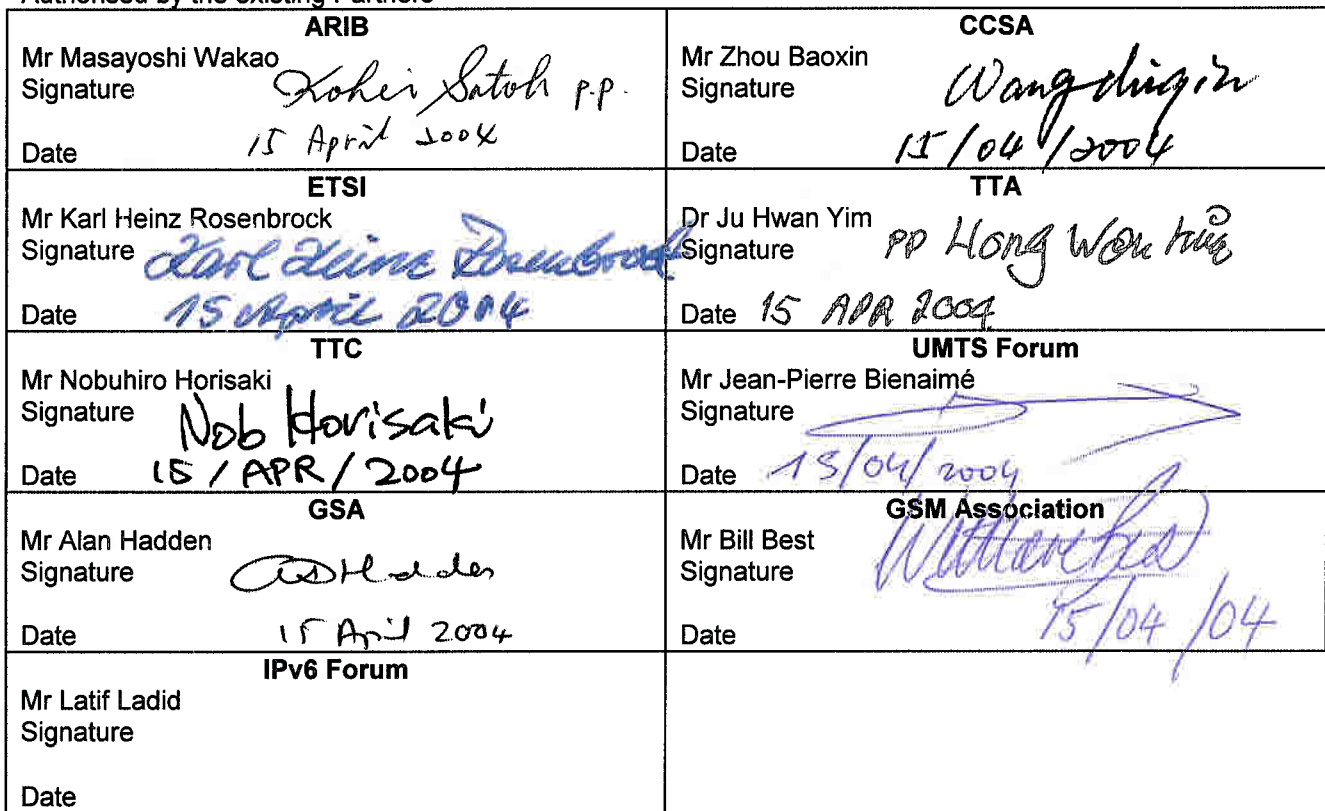 Authorised by the existing Partners
ARIB
Mr Masayoshi Wakao
Signature Kohei Satoh p.p.
Date 15 April 2004
CCSA
Mr Zhou Baoxin
Signature
Date 15/04/2004
ETSI
Mr Karl Heinz Rosenbrock
Signature Karl Heinz Rosenbrock
Date 15 April 2004
TTA
Dr Ju Hwan Yim
Signature PP Hong Won
Date 15 APR 2004
TTC
Mr Nobuhiro Horisaki
Signature Nob Horisaki
Date 15/APR/2004
UMTS Forum
Mr Jean-Pierre Bienaimé
Signature
Date 15/04/2004
GSA
Mr Alan Hadden
Signature
Date 15 April 2004
GSM Association
Mr Bill Best
Signature
Date 15/04/04
IPv6 Forum
Mr Latif Ladid
Signature
Date